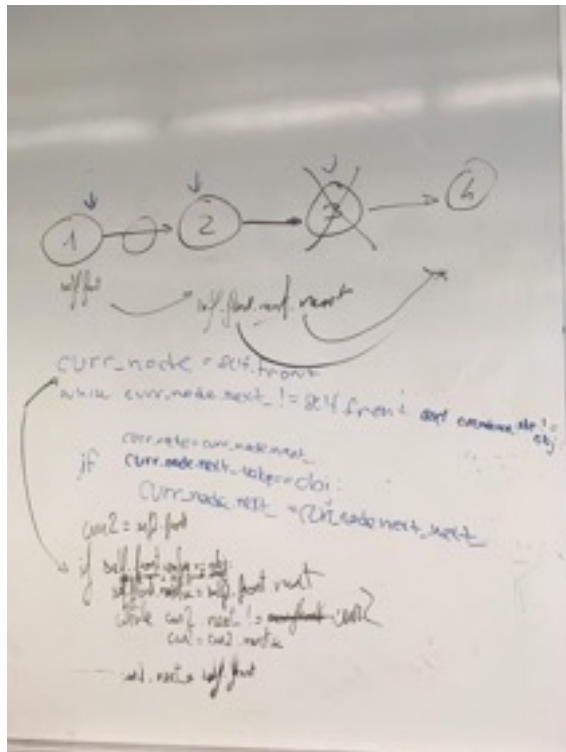 1 2 3 4
self.front self.front.next.next
curr_node = self.front
while curr_node.next_ != self.front and !=
obj
curr_node = curr_node.next_
if curr_node.next_.value == obj:
curr_node.next_ = curr_node.next_.next_
cur2 = self.front
if self.front.value == obj:
self.front = self.front.next
while cur2.next_ != cur2
cur2 = cur2.next_
cur2.next_ = self.front